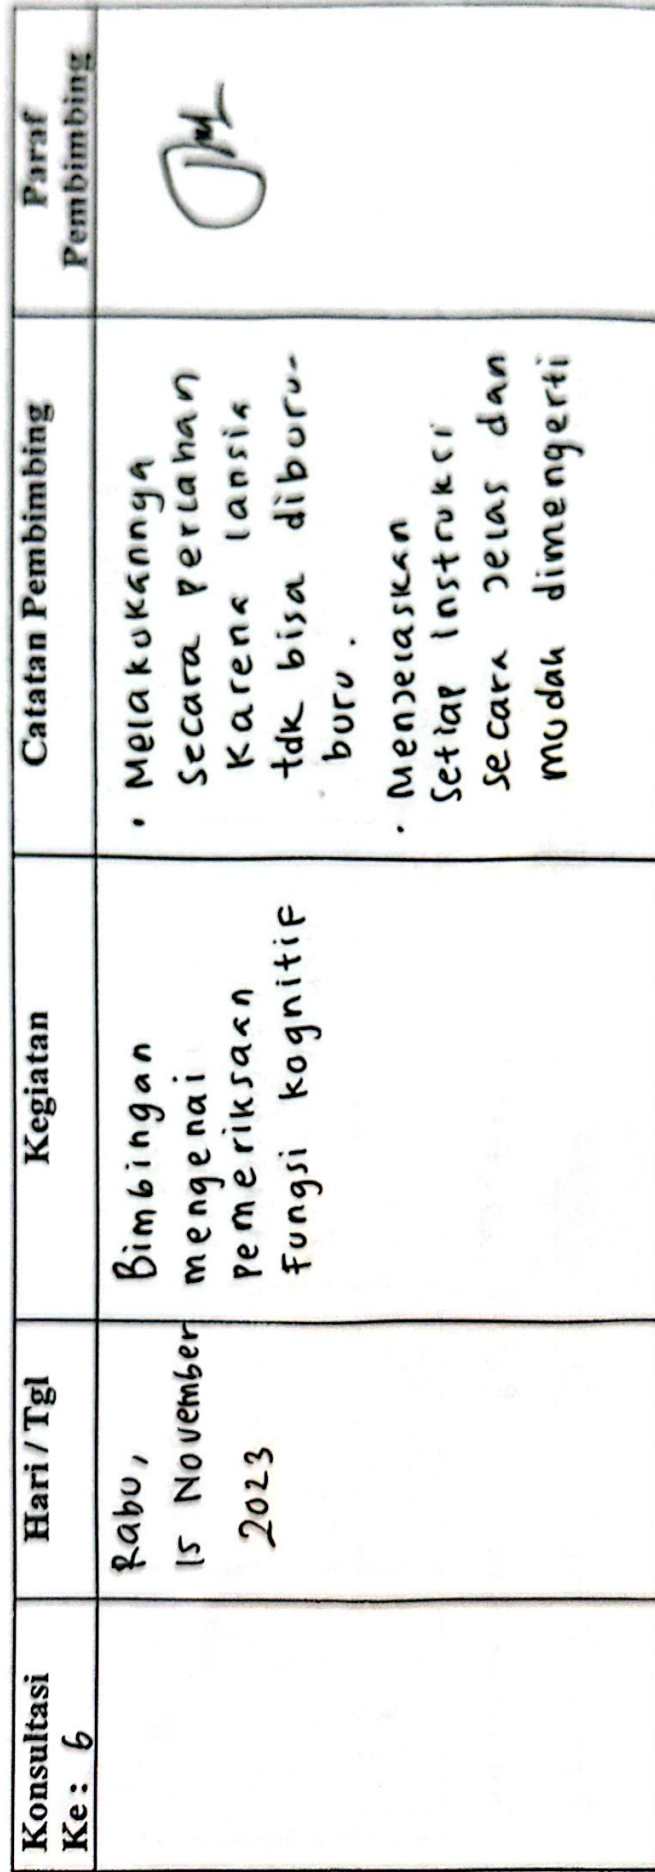 Konsultasi
Ke : 6
Hari / Tgl
Kegiatan
Catatan Pembimbing
Paraf
Pembimbing
Rabu,
15 November
2023
Bimbingan
mengenai
Pemeriksaan
Fungsi kognitif
• Melakukannya
secara perlahan
karena lansia
tdk bisa diburu-
buru.
• Menjelaskan
Setiap instruksi
secara jelas dan
mudah dimengerti